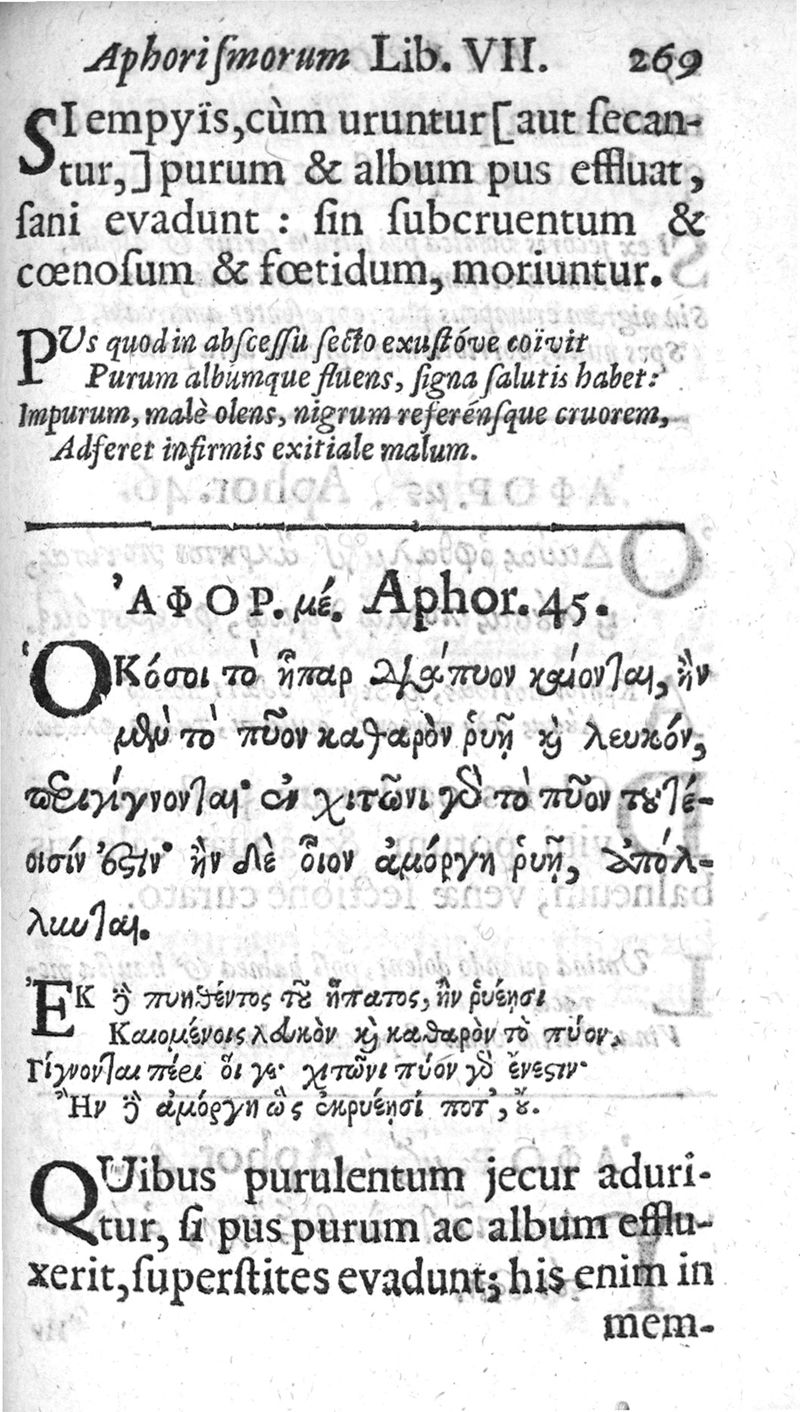 Aphoriſmorum Lib. VII. 269
SI empyïs, cùm uruntur [aut ſecan-
tur,] purum & album pus effluat,
ſani evadunt : ſin ſubcruentum &
cœnoſum & fœtidum, moriuntur.
PUs quod in abſceſſu ſecto exuſtóve coïvit
Purum albumque fluens, ſigna ſalutis habet:
Impurum, malè olens, nigrum referénſque cruorem,
Adferet infirmis exitiale malum.
ἈΦΟΡ. μέ. Aphor. 45.
ὉΚόσοι τὸ ἧπαρ διάπυον καίονται, ἢν
μὲν τὸ πῦον καθαρὸν ῥυῇ καὶ λευκόν,
περιγίγνονται· ἐν χιτῶνι γὰρ τὸ πῦον τουτέ-
οισίν ἐστιν· ἢν δὲ οἷον ἀμόργη ῥυῇ, ἀπόλ-
λυνται.
ἘΚ δὲ πυηθέντος τοῦ ἥπατος, ἢν ῥυέῃσι
Καιομένοις λευκὸν καὶ καθαρὸν τὸ πύον,
Γίγνονται πέρι οἵ γε· χιτῶνι πύον γὰρ ἔνεστιν·
Ἢν δὲ ἀμόργη ὣς ἐκρυέῃσί ποτ', οὔ.
QUibus purulentum jecur aduri-
tur, ſi pus purum ac album efflu-
xerit, ſuperſtites evadunt; his enim in
mem-